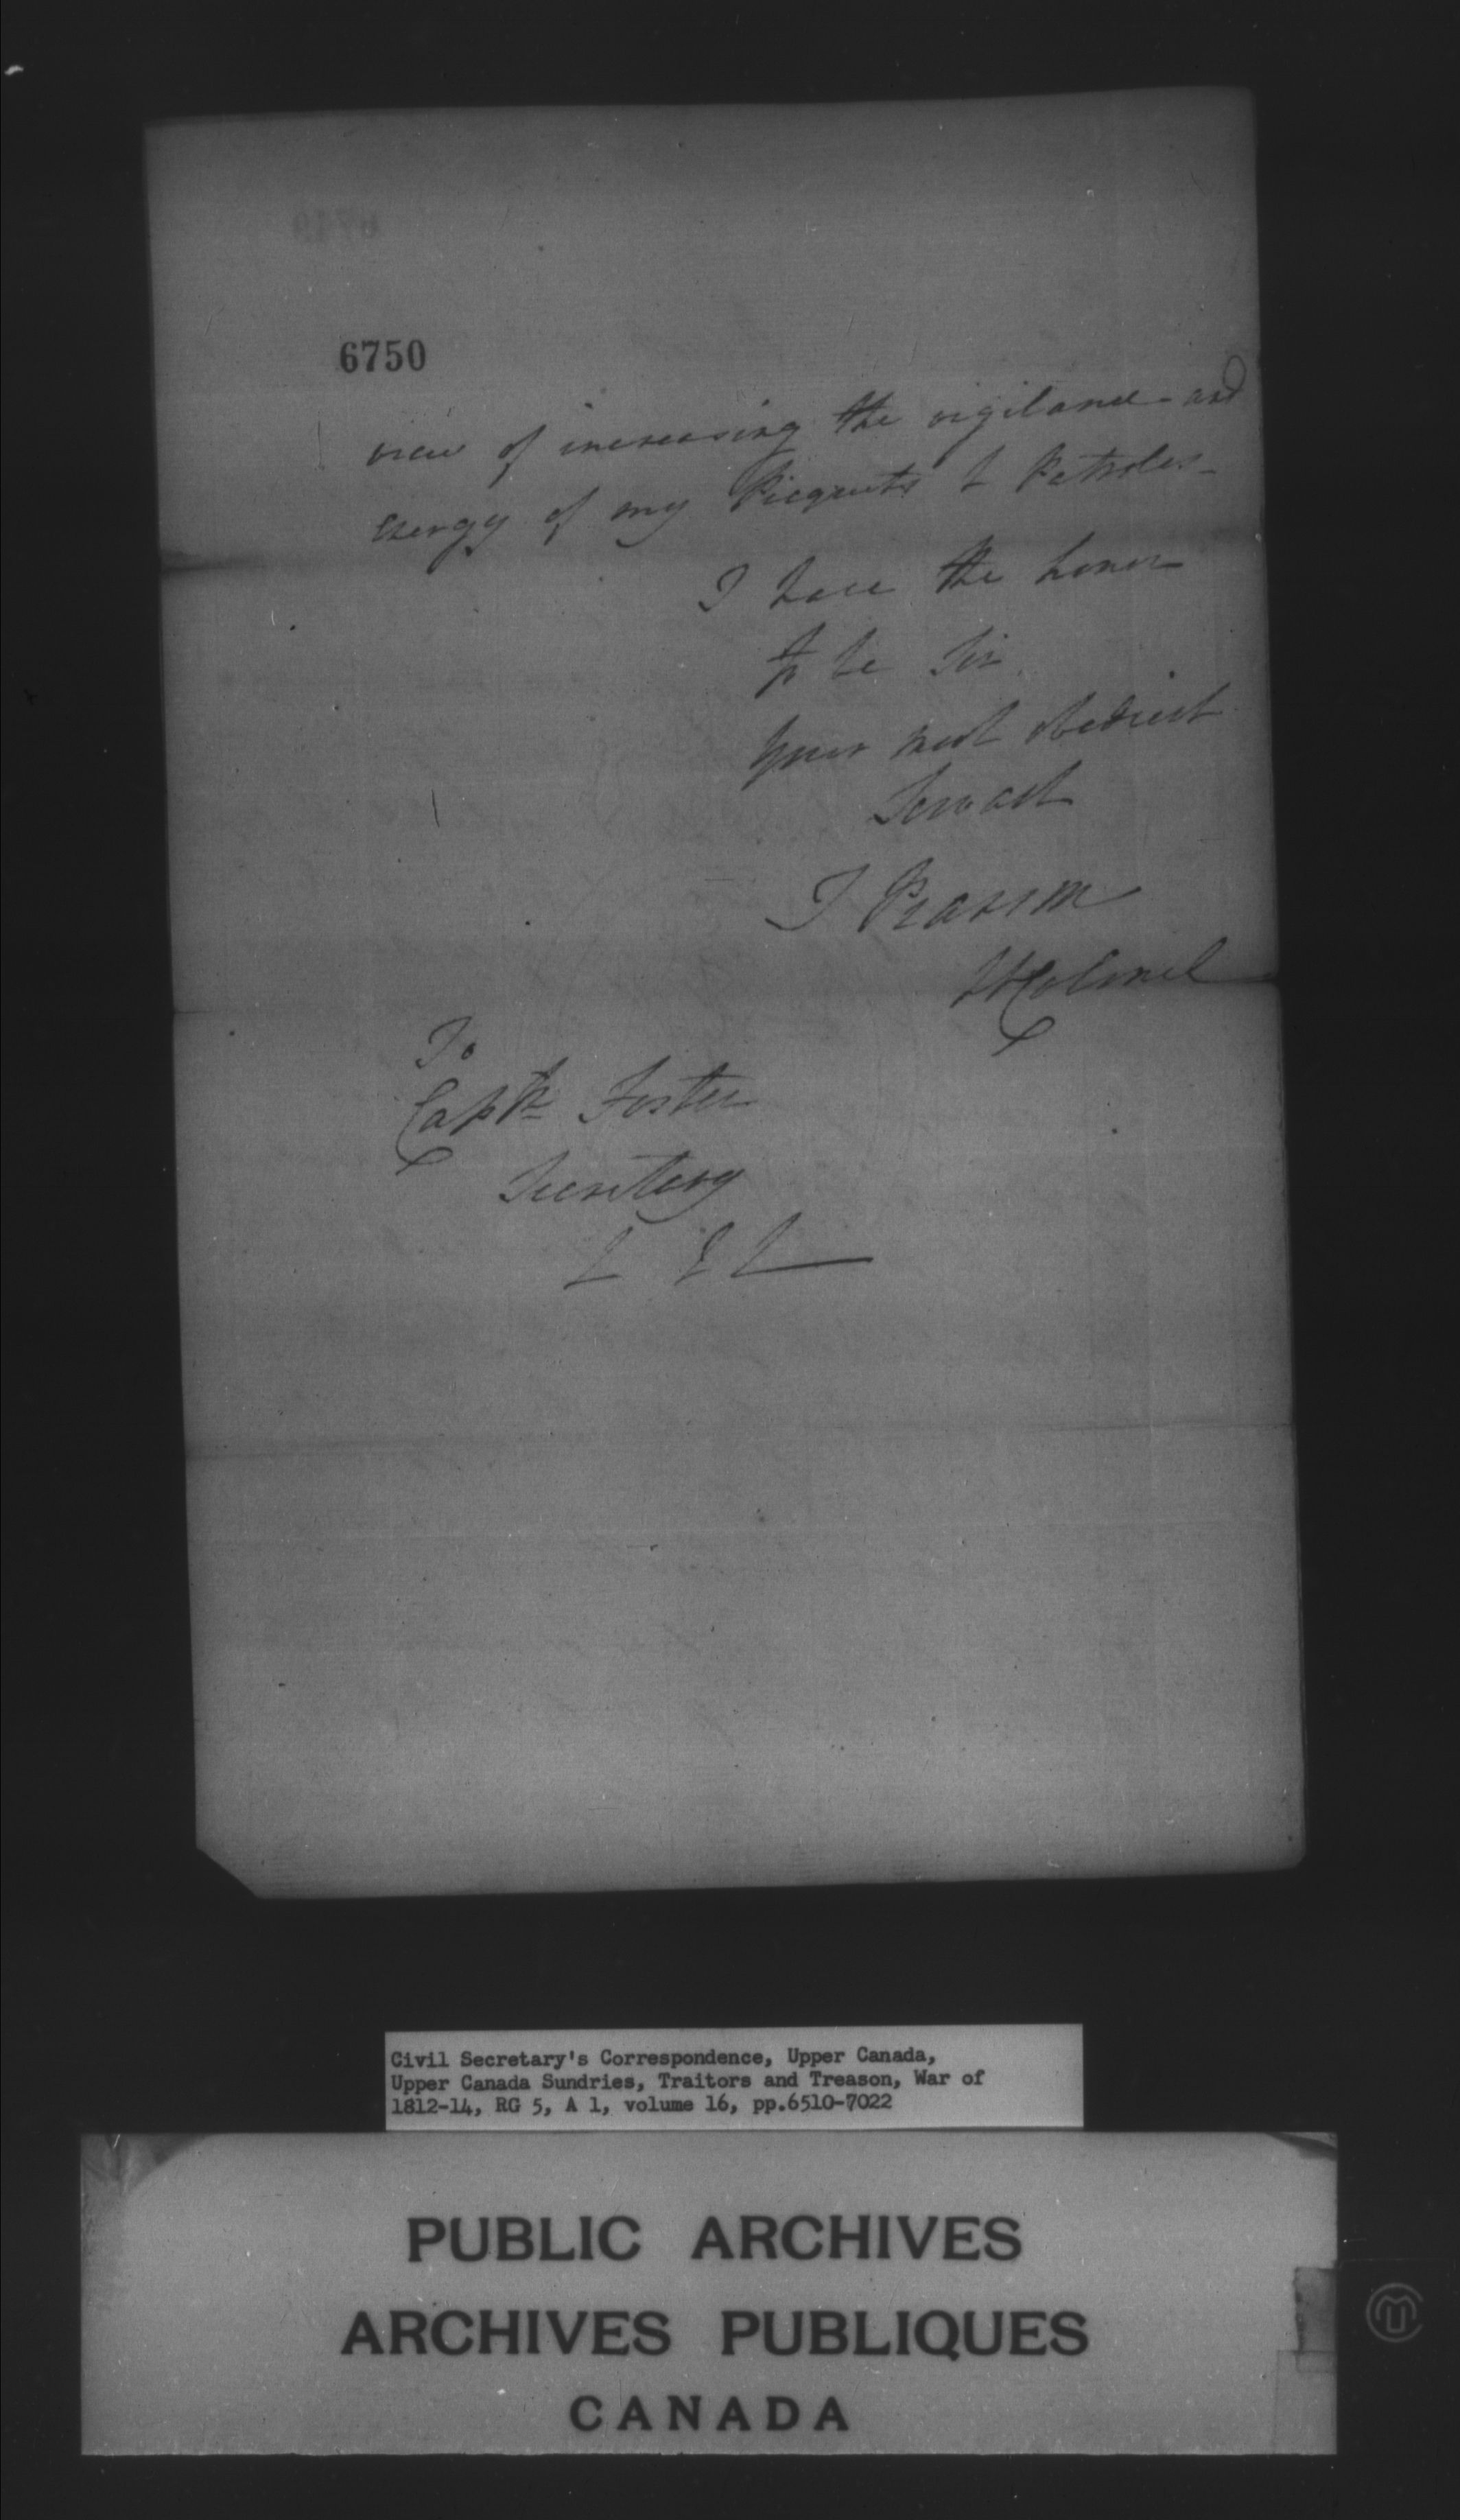 6750
view of increasing the vigilance and
energy of my Picquets & Patroles_
I have the honor
to be Sir
Your most obedient
Servant
T Pearson
Lt Colonel
To
Captn Foster
Secretary
& & &
Civil Secretary's Correspondence, Upper Canada,
Upper Canada Sundries, Traitors and Treason, War of
1812-14, RG 5, A 1, volume 16, pp.6510-7022
PUBLIC ARCHIVES
ARCHIVES PUBLIQUES
CANADA